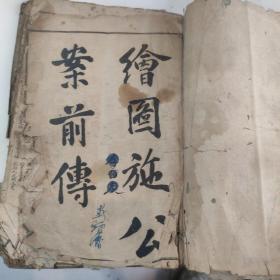 繪圖施公
案前傳